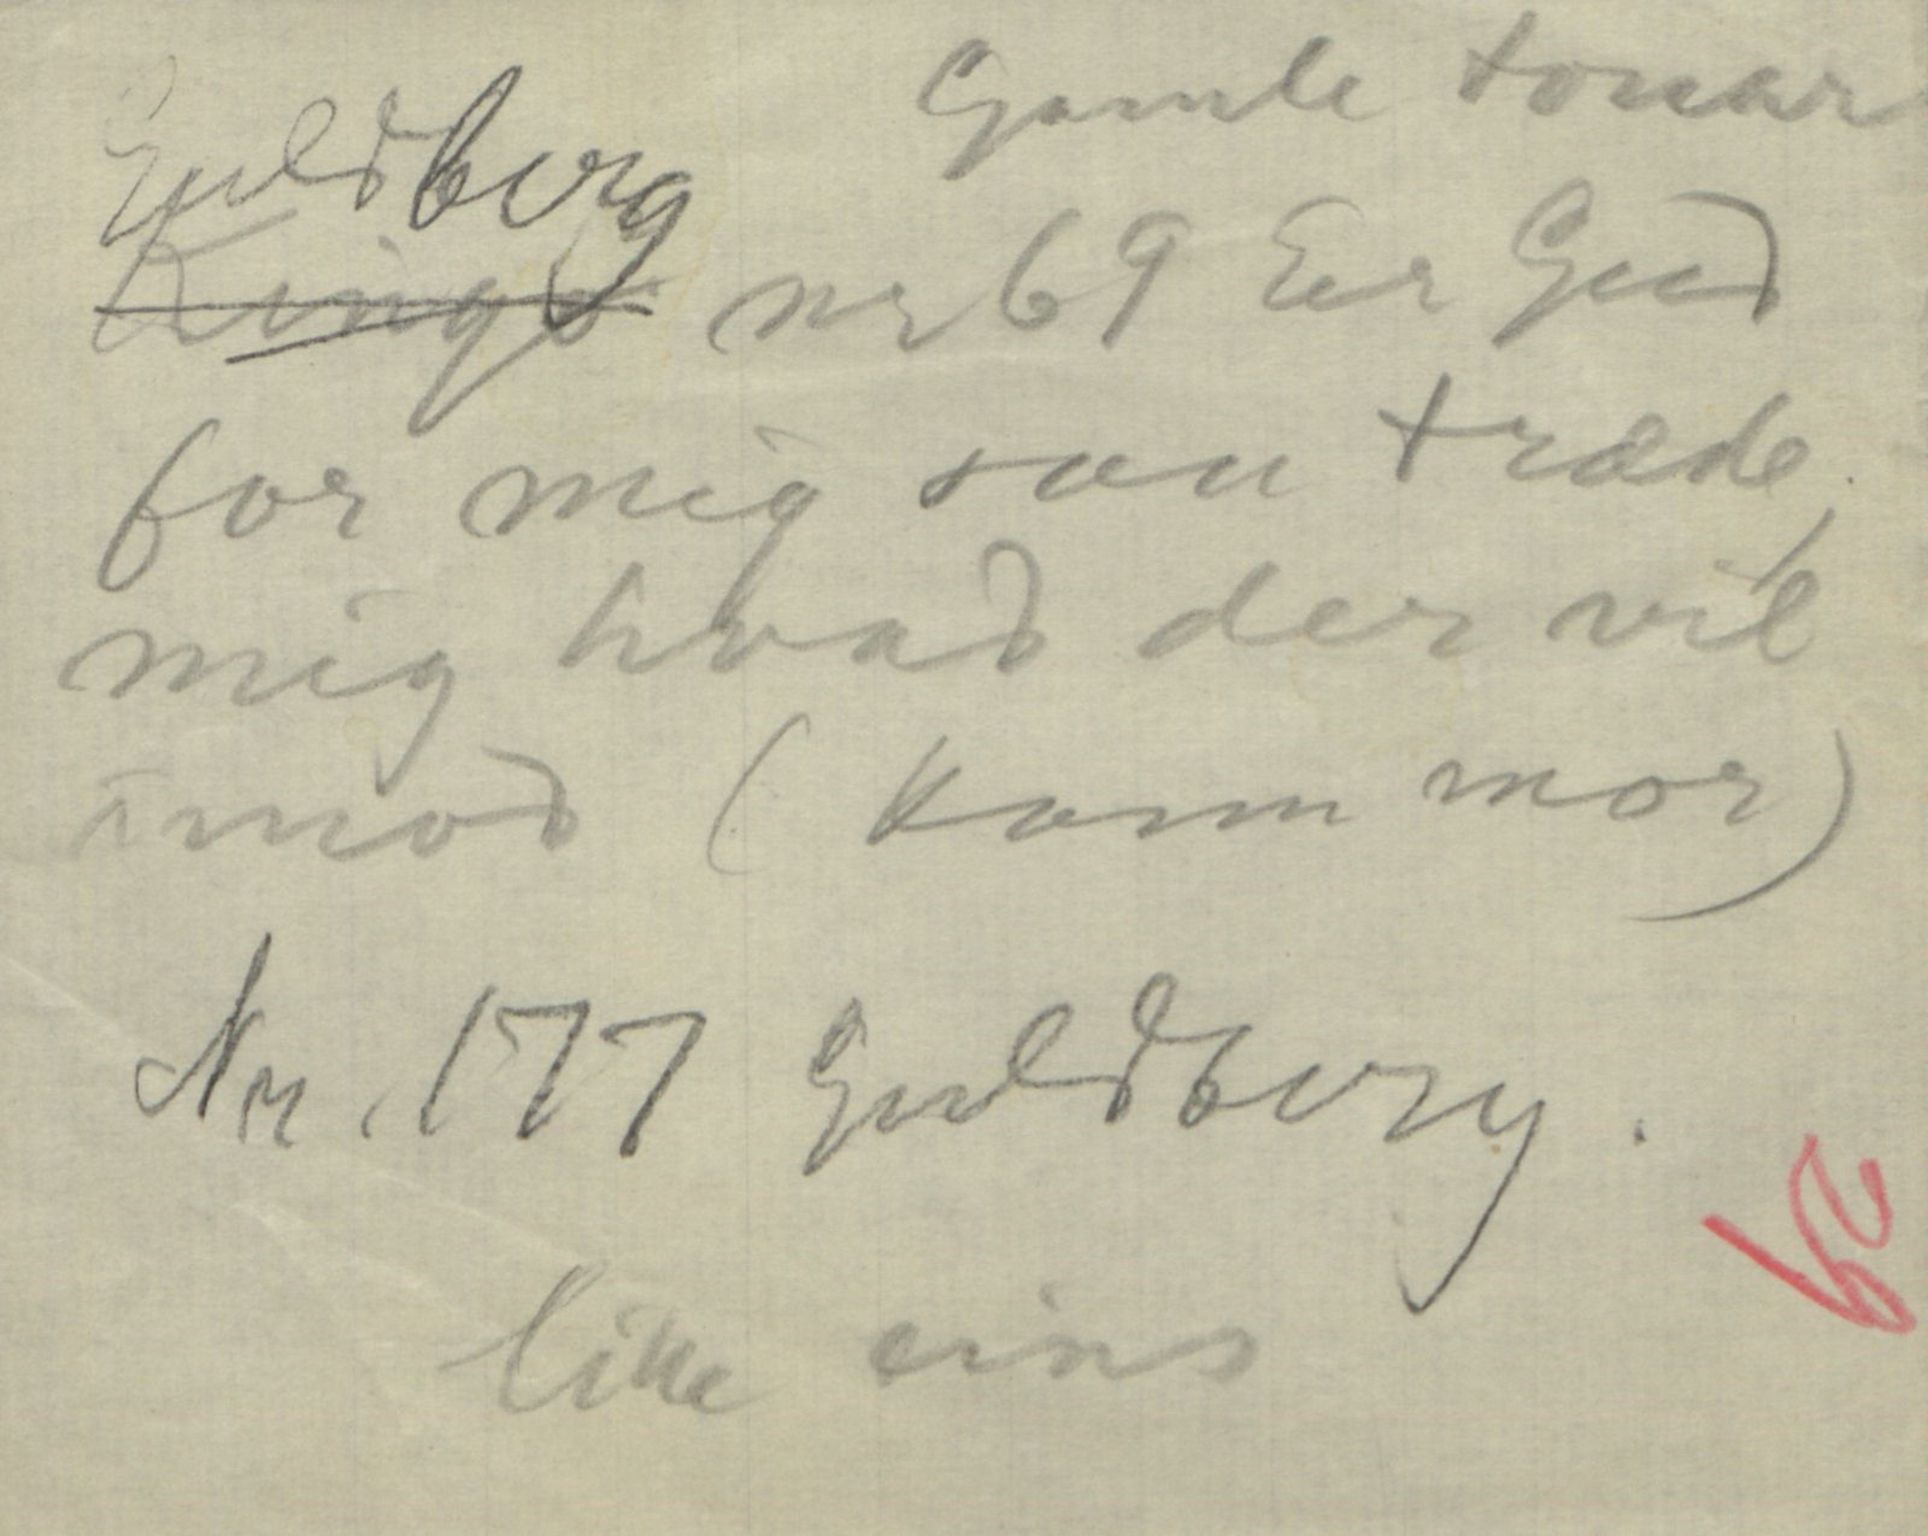 Gamle tonar
Guldberg
Kingo nr 69 Er Gud
for mig saa træde
mig hvad der vil
imod (kann mor)
Nr. 177 Guldberg.
like eins